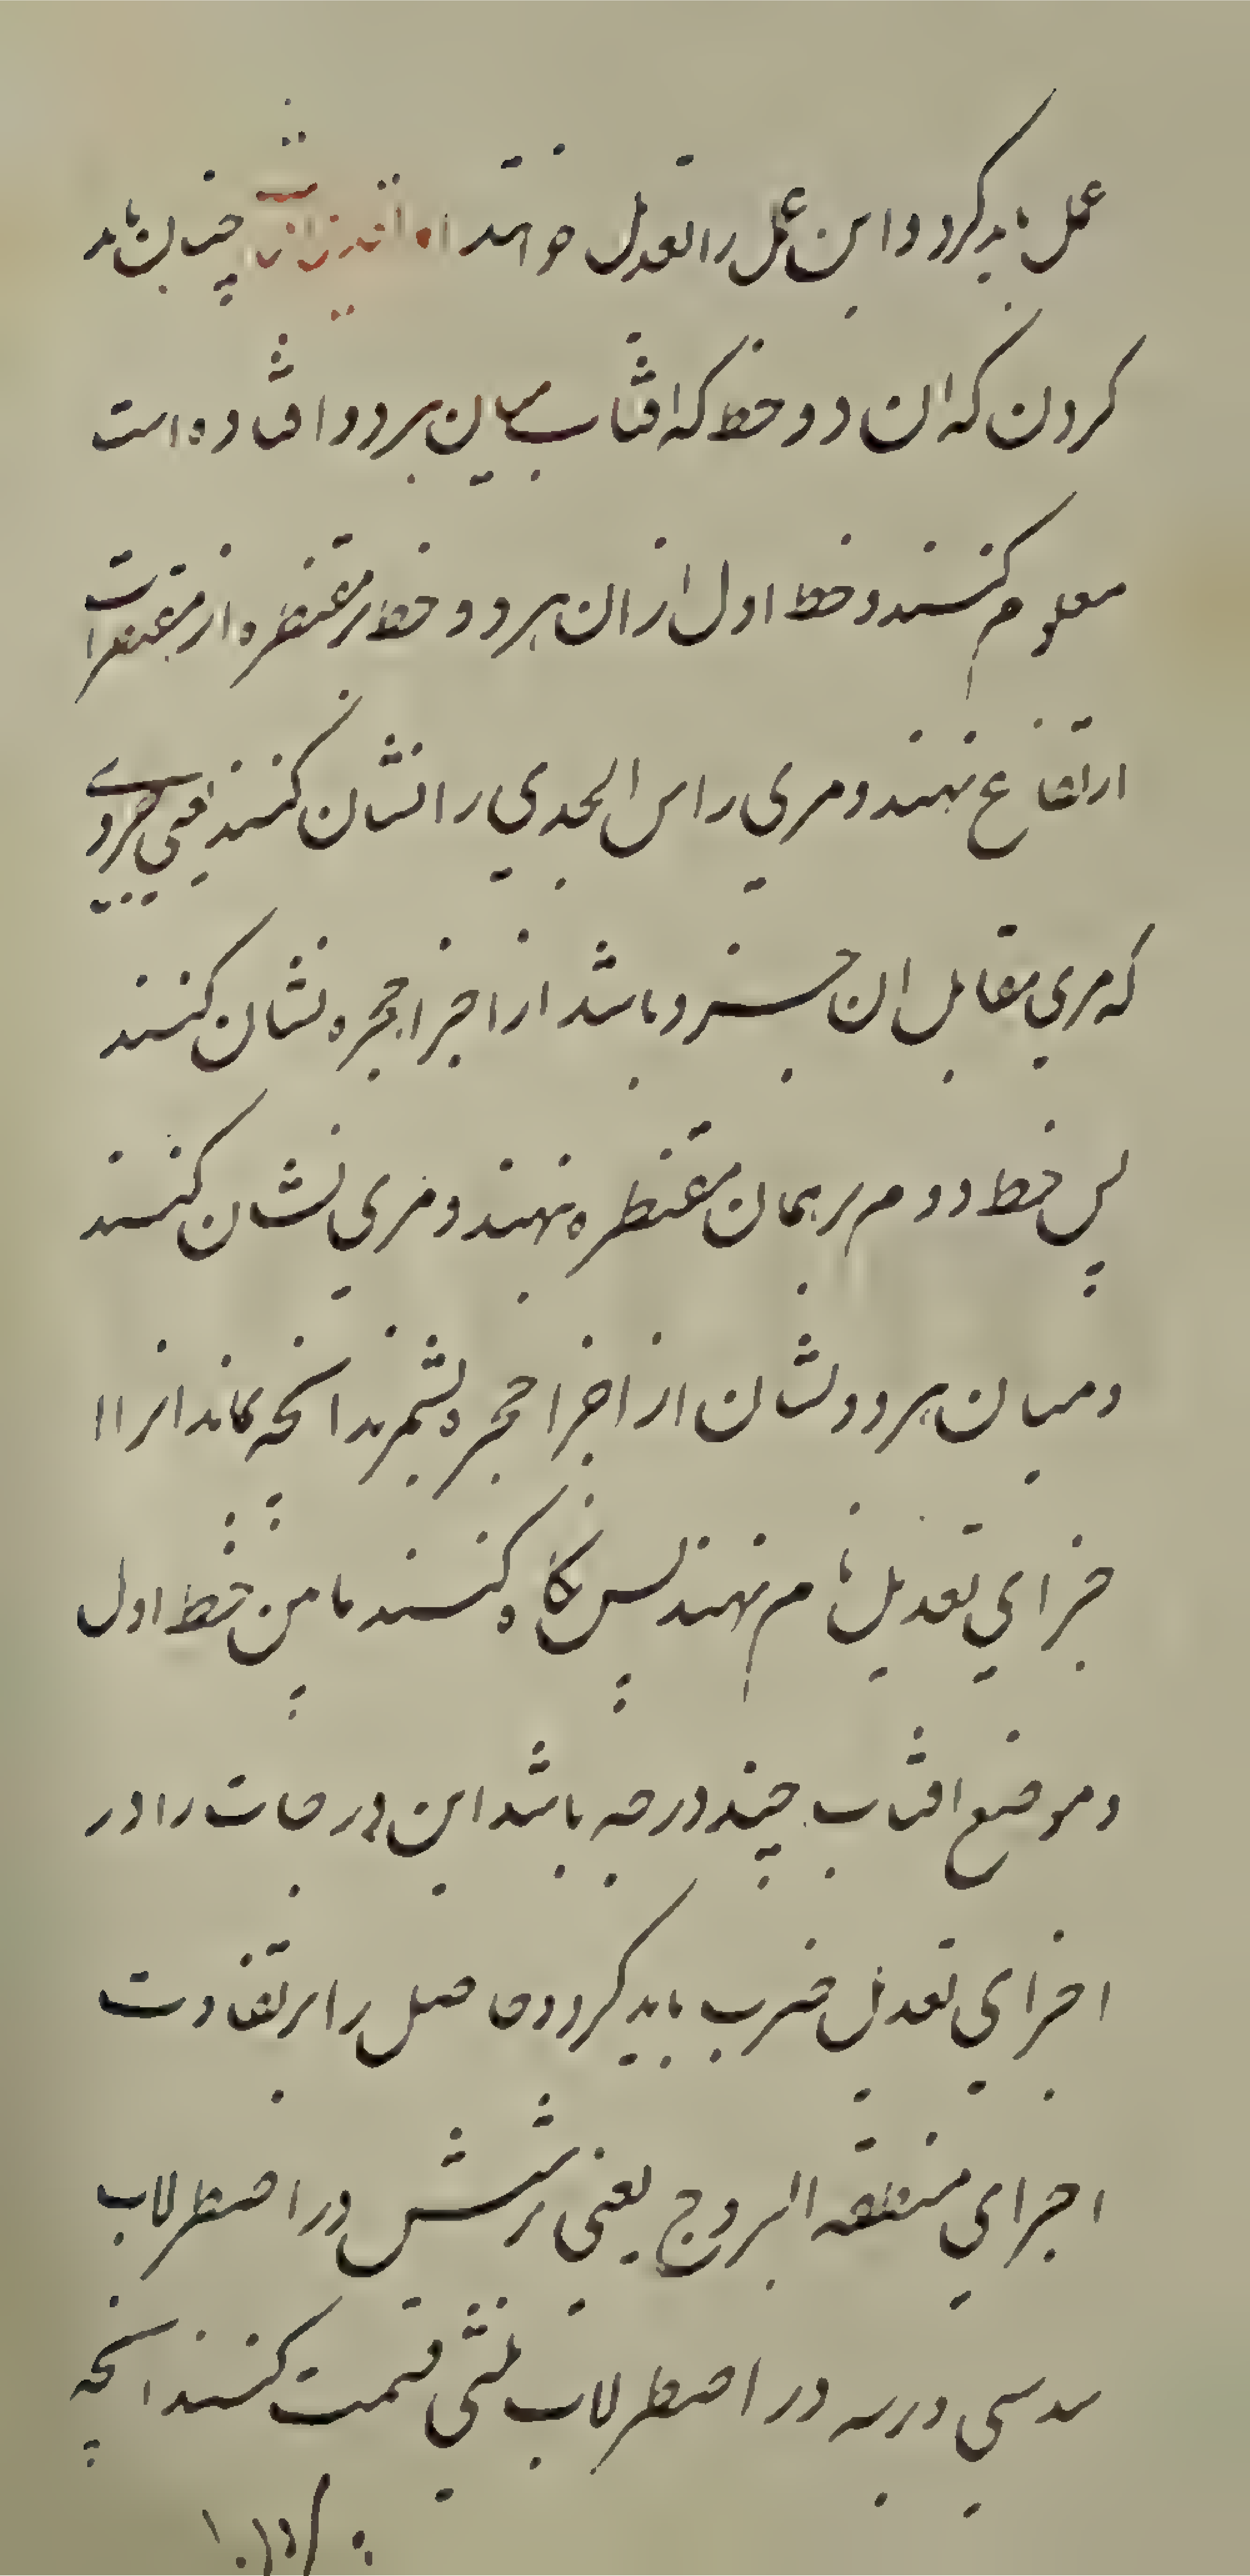 عمل باید کرد و این عمل را تعدیل خوانند اما تعدیل چنان باید
کردن که ان دو خط که افتاب بمیان هر دو افتاده است
معلوم کنند و خط اول از ان هر دو خط بر مقنطره از مقنطرات
ارتفاع نهند و مری راس الجدی را نشان کنند یعنی جزوی
که مری مقابل ان جزو باشد از اجزا حجره نشان کنند
پس خط دوم بر همان مقنطره نهند و مری نشان کنند
و میان هر دو نشان از اجزا حجره بشمرند انچه بماند انرا ا
جزای تعدیل نام نهند پس نگاه کنند تا من خط اول
و موضع افتاب چند درجه باشد این درجات را در
اجزای تعدیل ضرب باید کرد و حاصل را بر تفاوت
اجزای منطقه البروج یعنی بر شش در اصطرلاب
سدسی و بر سه در اصطرلاب ثلثی قسمت کنند انچه